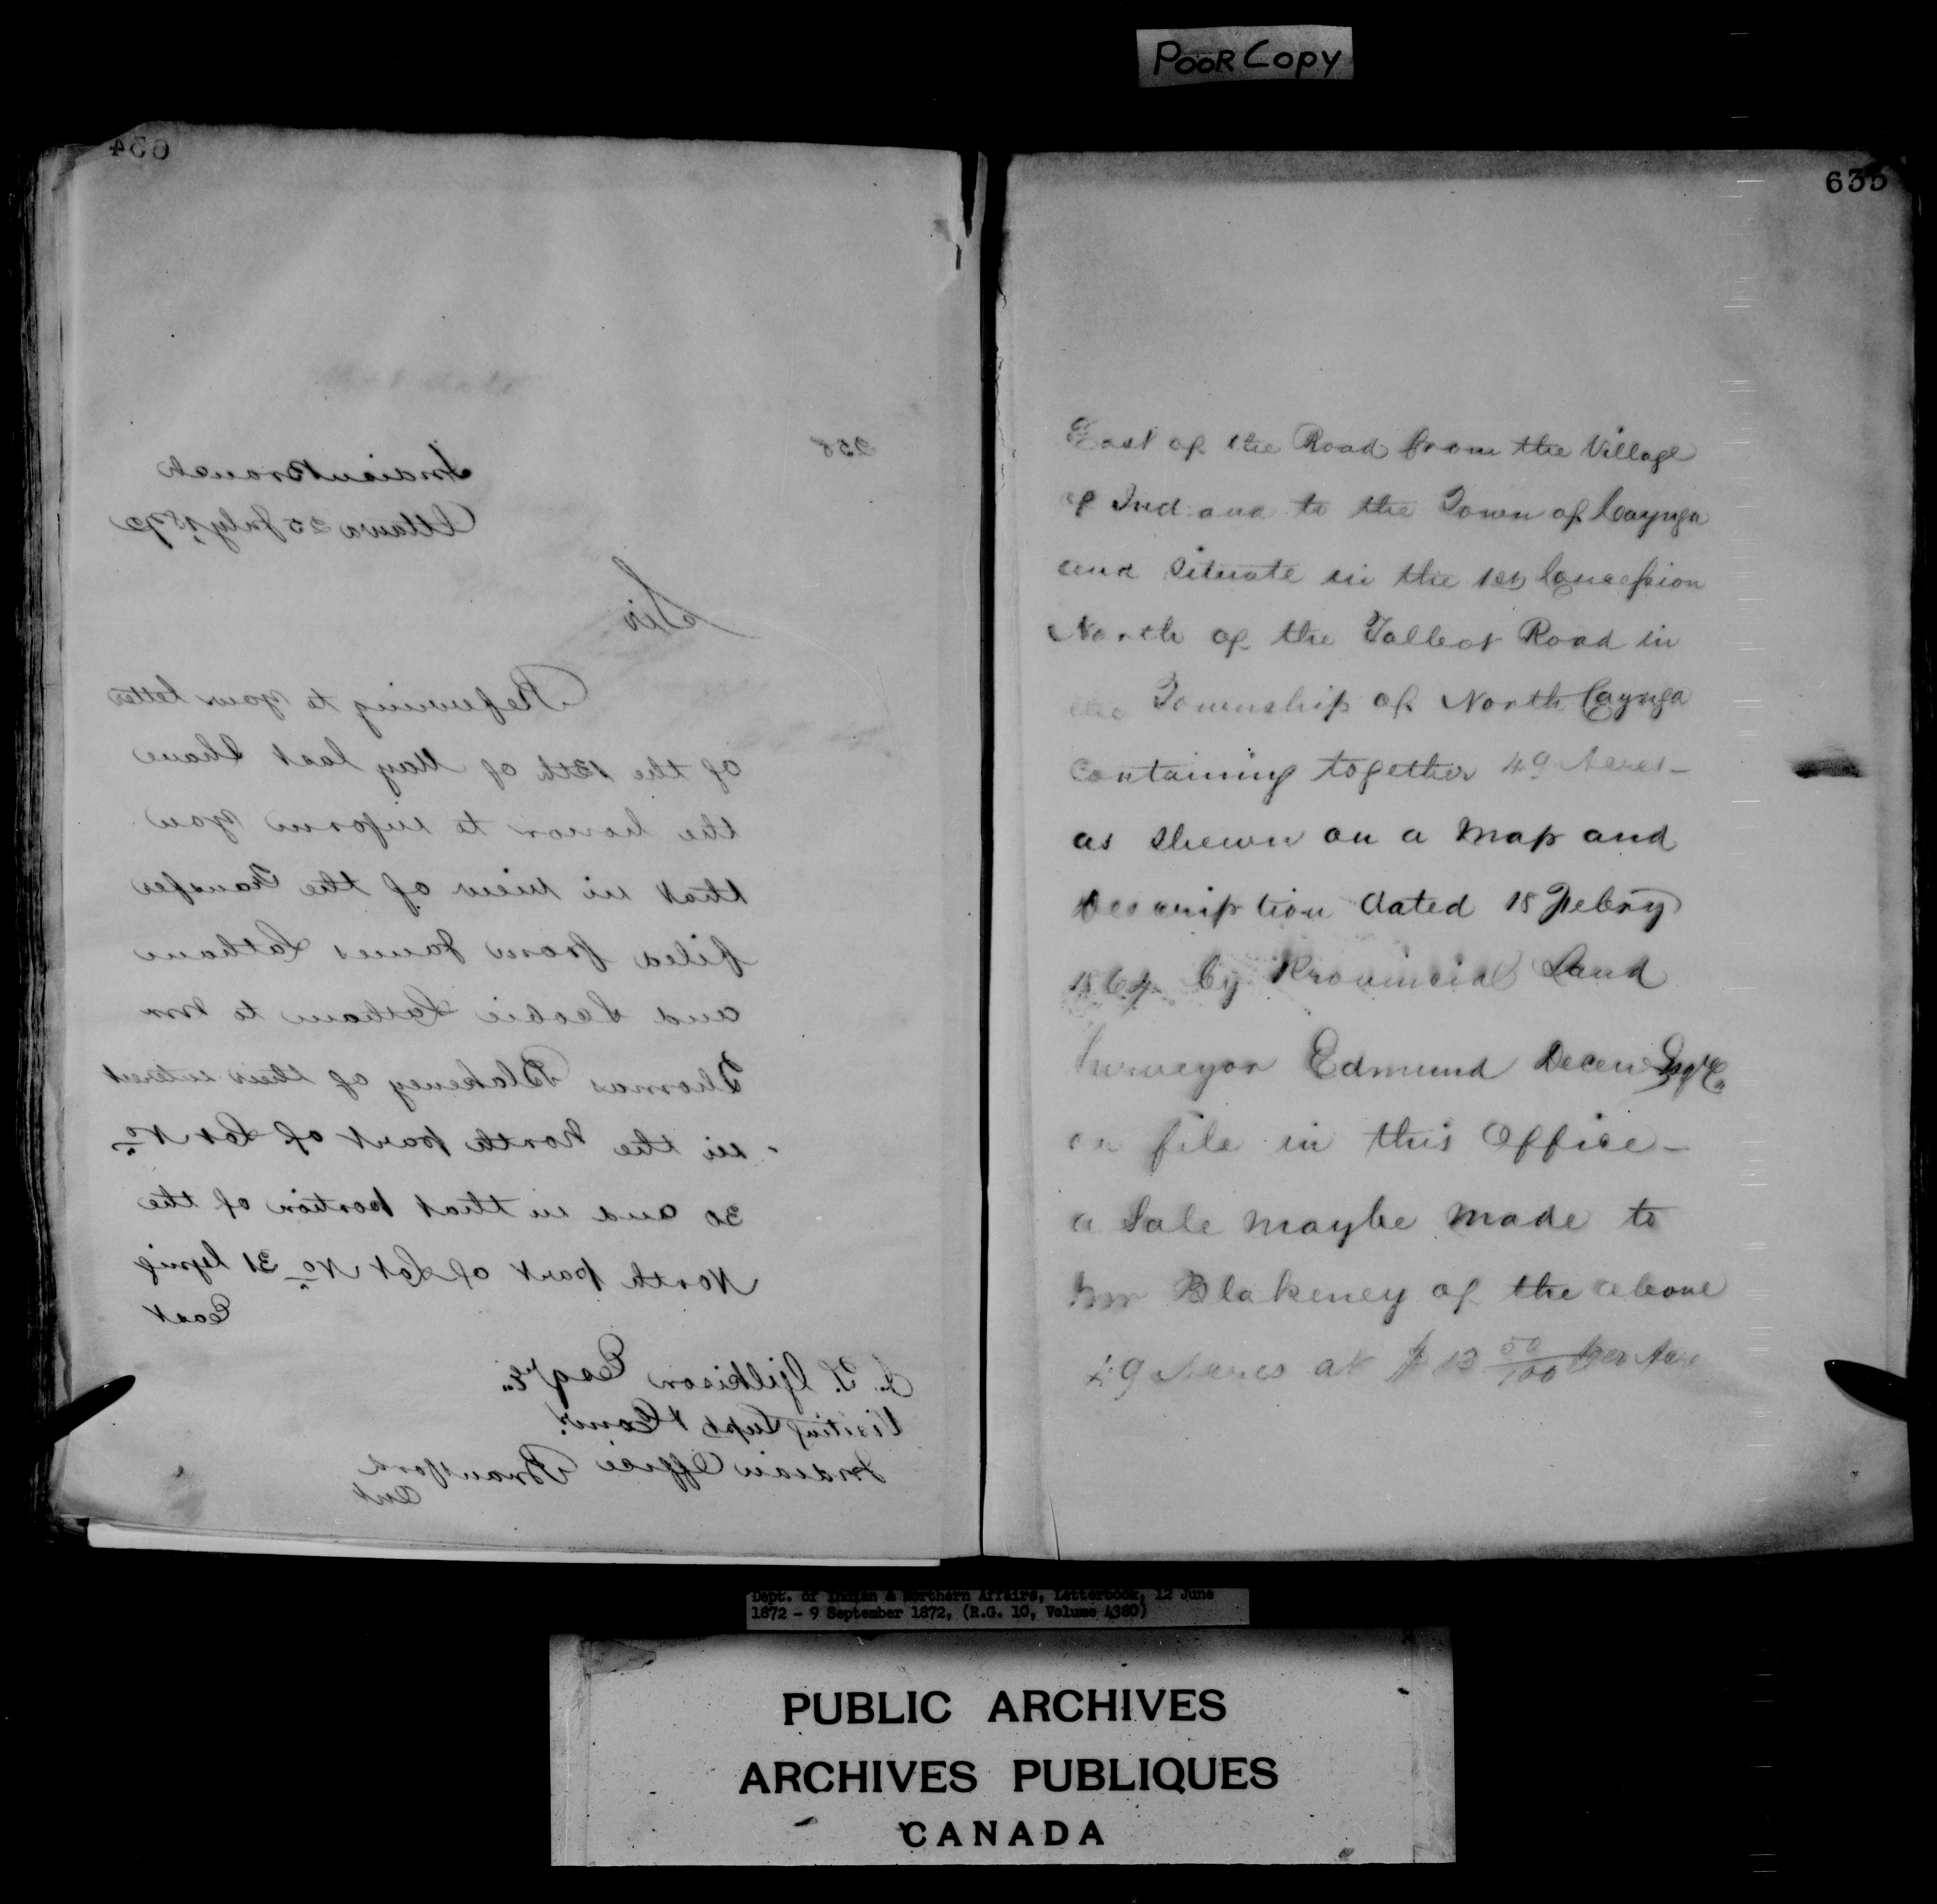 POOR COPY
634
258
Indian Branch
Ottawa 25 July 1872
Sir
Referring to your letter
of the 13th of May last I have
the honor to inform you
that in view of the Transfer
filed from James Latham
and Latham to Mr
Thomas Blakeney of their interest
in the North part of Lot No.
30 and in that portion of the
North part of Lot No. 31 lying
East
J. T. Gilkison Esqre.
Visiting Supt & Comr.
Indian Office Brantford
Ont
635
East of the Road from the Village
of Indiana to the Town of Cayuga
and situate in the 1st Concession
North of the Talbot Road in
the Township of North Cayuga
Containing together 49 Acres -
as shewn on a Map and
Description dated 18 Febry
1864 by Provincial Land
Surveyor Edmund Decew Esqre.
on file in this Office -
a Sale maybe made to
Mr Blakeney of the above
49 Acres at $13 50/100 per Acre
Dept. of Indian & Northern Affairs, Letterbook, 12 June
1872 - 9 September 1872, (R.G. 10, Volume 4380)
PUBLIC ARCHIVES
ARCHIVES PUBLIQUES
CANADA